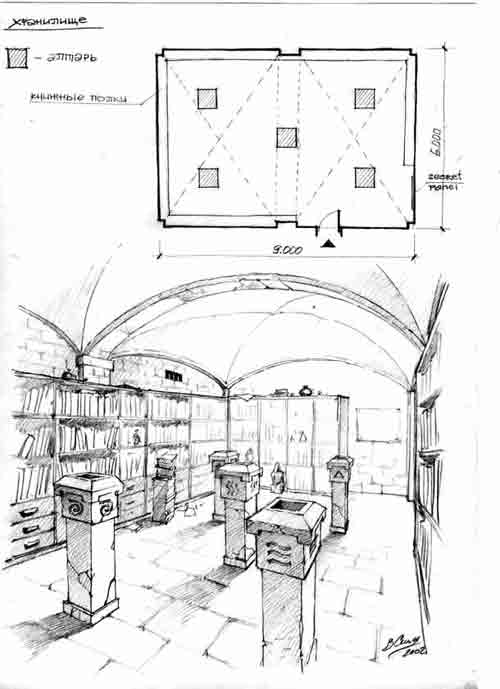 хранилище
- алтарь
книжные полки
6.000
secret
panel
9.000
2002